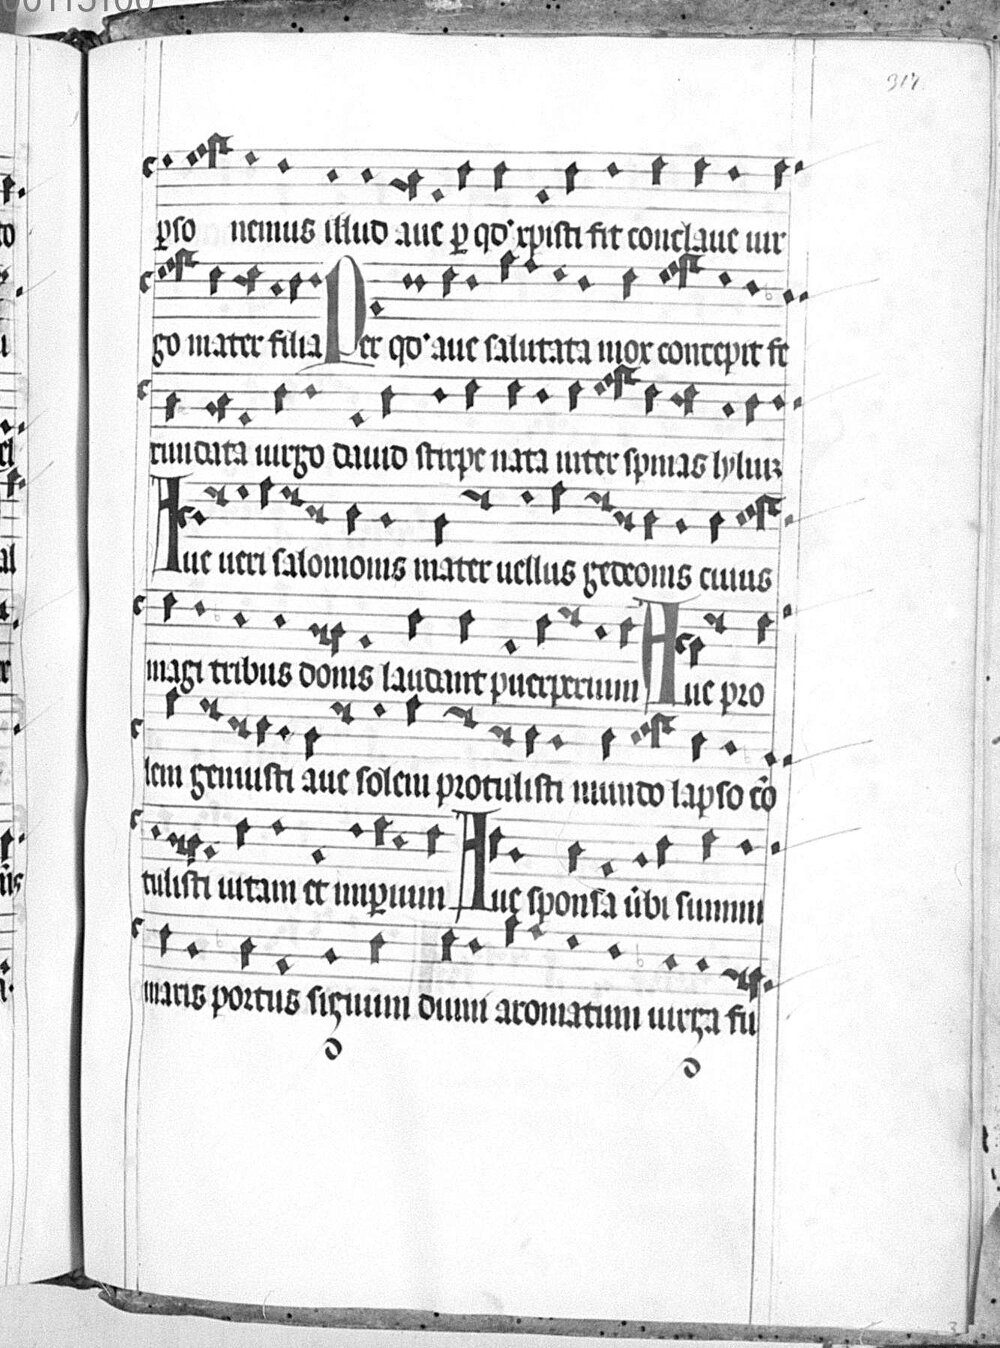 317
ꝑso nemus illud aue ꝑ qd' xpisti fit conclaue uir
go mater filia Per qd' aue salutata mox concepit fe
cundata uirgo dauid stirpe nata inter spinas lyliuꝫ
Aue ueri salomonis mater uellus gedeonis cuius
magi tribus donis laudant puerperium Aue pro
lem genuisti aue solem protulisti mundo lapso cō
tulisti uitam et imꝑium Aue sponsa ūbi summi
maris portus signum dumi aromatum uirga fu